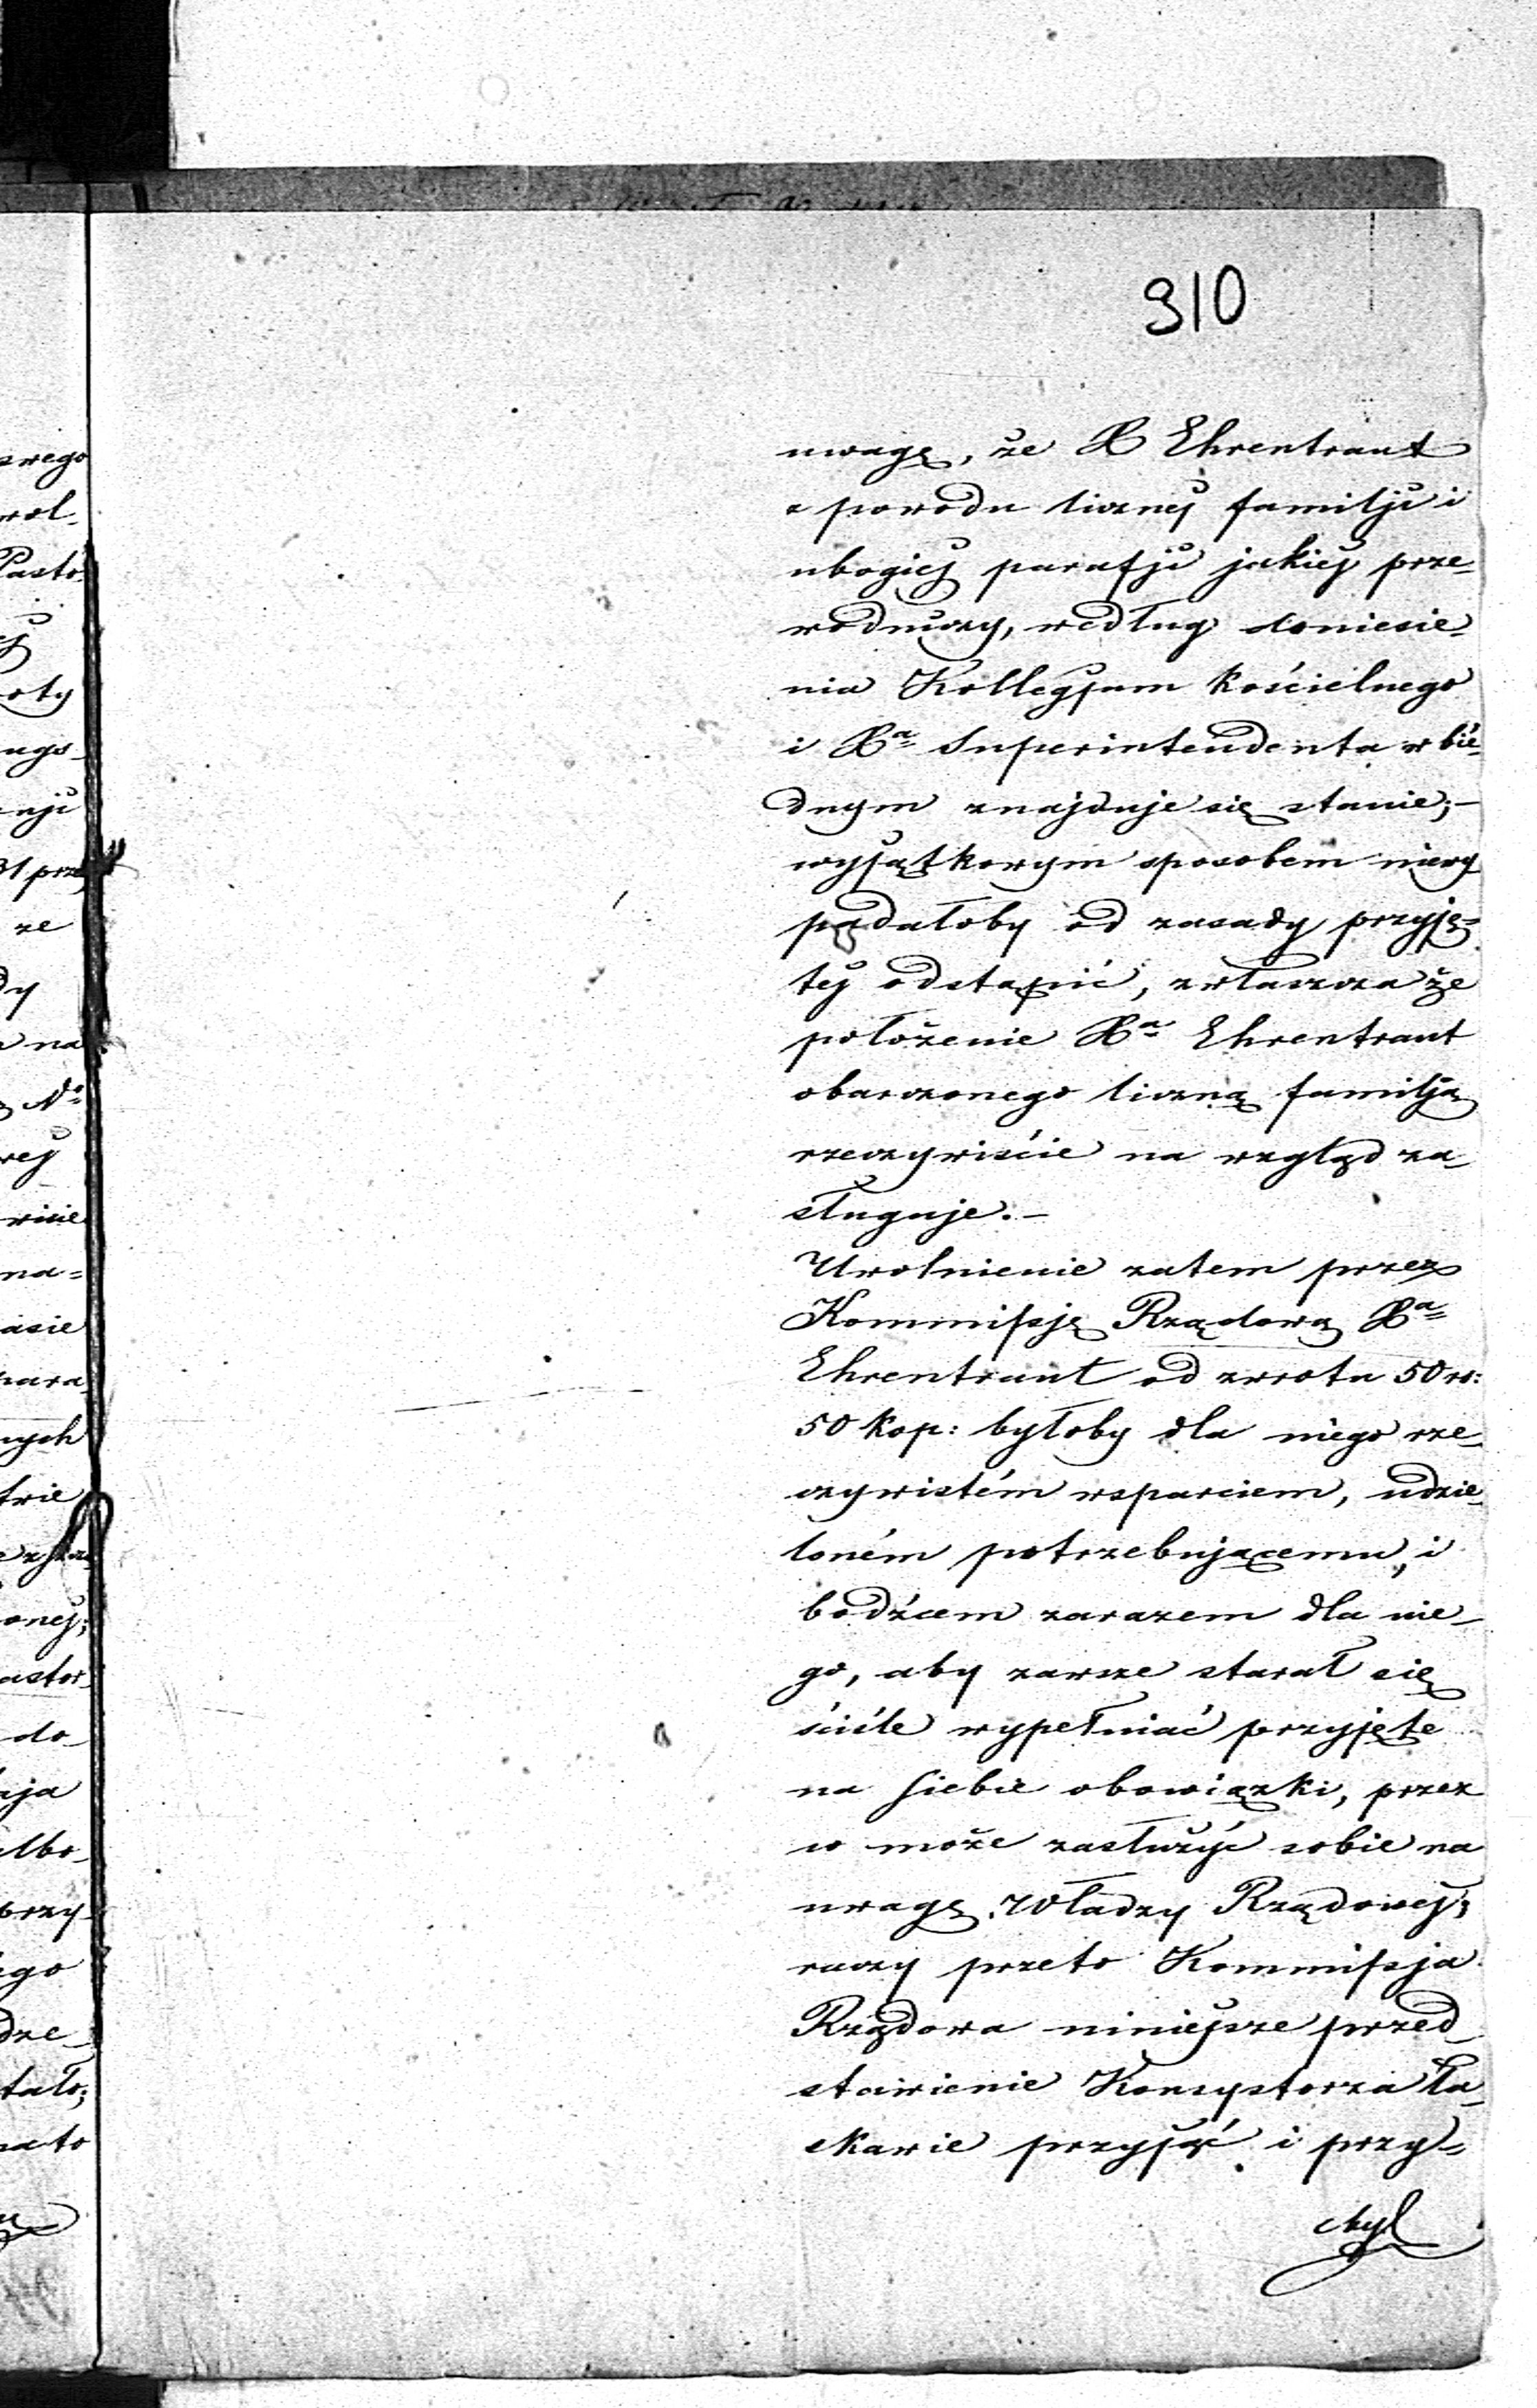 310
uwagę, że X Ehrentraut
z powodu licznej familji i
ubogiej parafji jakiej prze-
wodniczy, według doniesie-
nia Kollegjum kościelnego
i Xa Superintendenta w bié-
dnym znajduje się stanie;-
wyjątkowym sposobem niewy
padałoby od zasady przyję-
tej odstąpić, zwłaszcza że
położenie Xa Ehrentraut
obarczonego liczną familją
rzeczywiście na wzgląd za-
sługuje.-
Uwolnienie zatem przez
Kommissję Rządową Xa
Ehrentraut od zwrotu 50 rs:
50 kop: byłoby dla niego rze-
czywistém wsparciem, udzie-
loném potrzebującemu, i
bodźcem zarazem dla nie-
go, aby zawsze starał się
ściśle wypełniać przyjęte
na siebie obowiązki, przez
co może zasłużyć sobie na
uwagę Władzy Rządowej;
raczy przeto Kommissja
Rządowa niniejsze przed-
stawienie Konsystorza ła-
skawie przyjąć i przy-
chyl
swego
wol-
Pasto-
oty
ugo-
nji
31 prze
ze
dy
na
No
wej
wicie
na-
asie
para-
nych
trie
onej;
astor
do-
aja
albo-
przy-
ego
dze-
tało;
nato